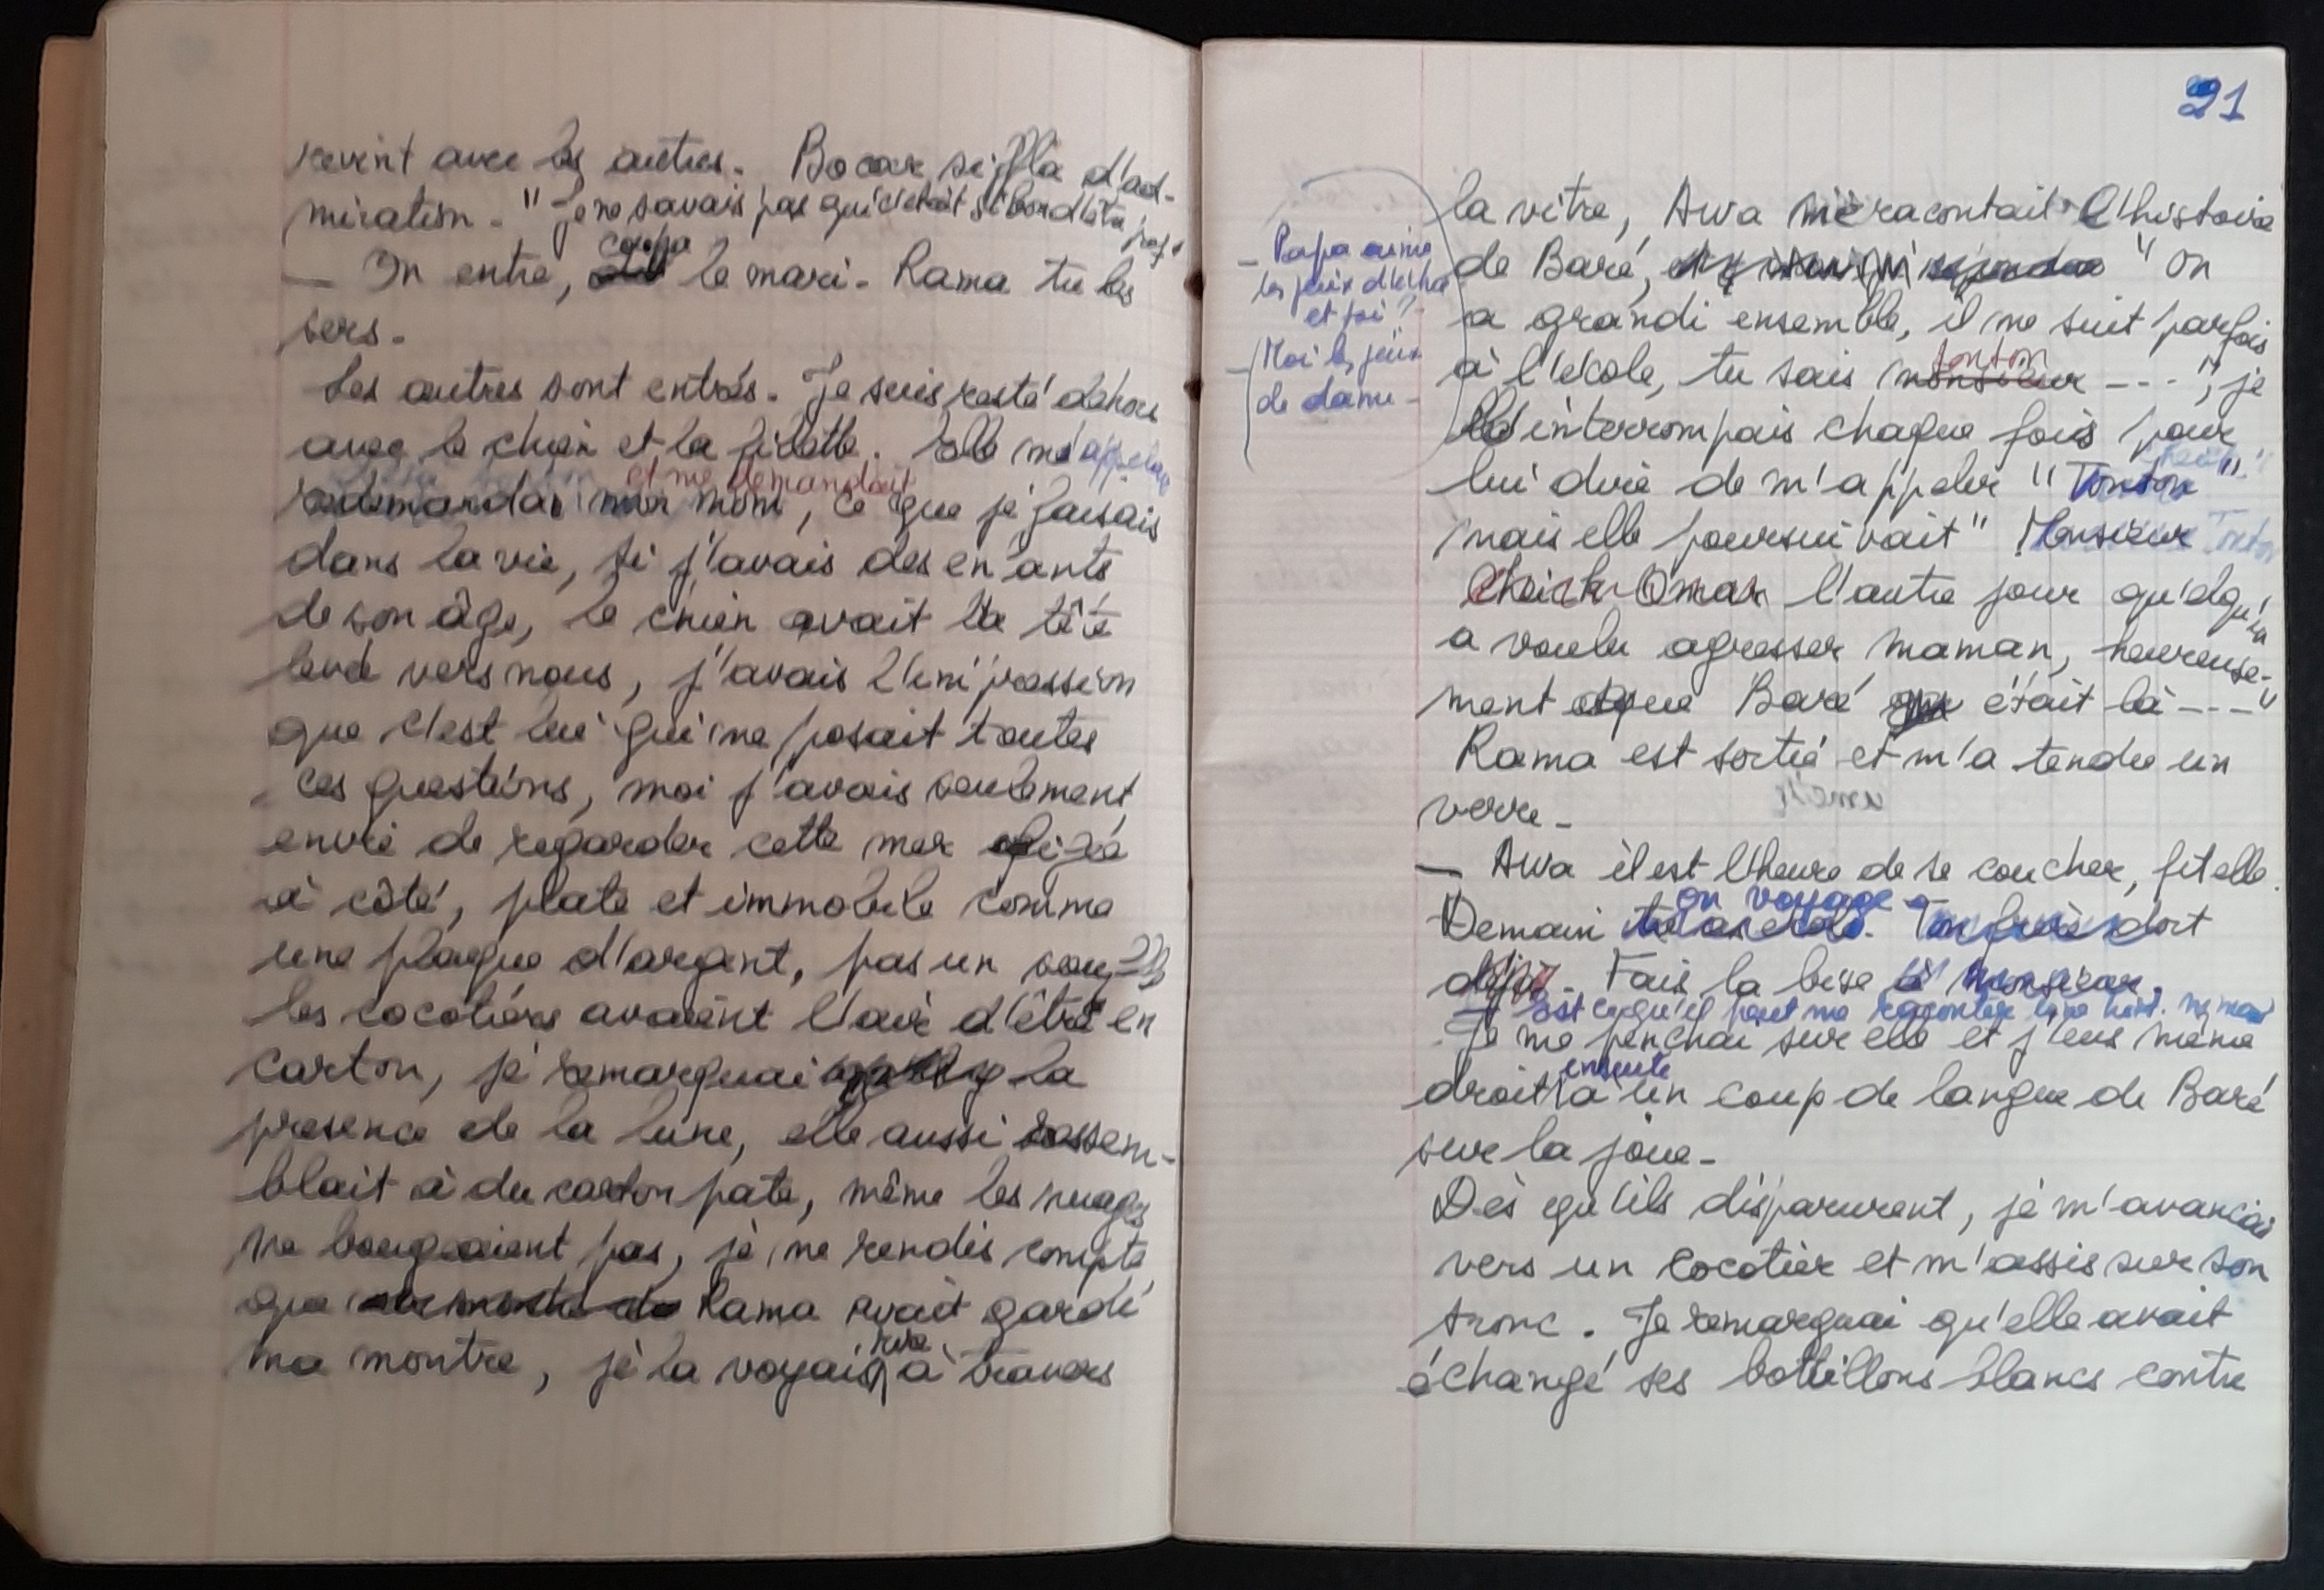 revint avec les autres. Bocar siffla d'ad-
miration. "Je ne savais pas que c'était si bon d'être prof"
coupa
— On entre, le mari. Rama tu les
sers.
Les autres sont entrés. Je suis resté dehors
avec le chien et la fillette. Elle m'appela
et me demandait
redemanda mon nom, ce que je faisais
dans la vie, si j'avais des enfants
de son âge, le chien avait la tête
levé vers nous, j'avais l'impression
que c'est lui qui me posait toutes
ces questions, moi j'avais seulement
envie de regarder cette mer figée
à côté, plate et immobile comme
une plaque d'argent, pas un
les cocotiers avaient l'air d'être en
carton, je remarquai la
présence de la lune, elle aussi ressem-
blait à du carton pate, même les nuages
ne bougeaient pas, je me rendis compte
que Rama avait gardé
ma montre, je la voyais à travers
21
la vitre, Awa me racontait l'histoire
de Baré, "on
a grandi ensemble, il me suit parfois
tonton
à l'école, tu sais monsieur ---", je
l'interrompais chaque fois pour
lui dire de m'appeler "Tonton"
mais elle poursuivait "Monsieur Tonton
Cheikh Omar l'autre jour quelqu'un
a voulu agresser maman, heureuse-
ment que Baré était là ---"
Rama est sortie et m'a tendu un
verre.
— Awa il est l'heure de se coucher, fit elle.
on voyage.
Demain tu as école. Ton frère dort
déjà. Fais la bise à Monsieur.
Est ce qu'il peut me raconter une hist.
Je me penchai sur elle et j'eus même
ensuite
droit à un coup de langue de Baré
sur la joue.
Dès qu'ils disparurent, je m'avançai
vers un cocotier et m'assis sur son
tronc. Je remarquai qu'elle avait
échangé ses bottillons blancs contre
— Papa aime
les jeux d'échec
et toi ?
— Moi les jeux
de dame -